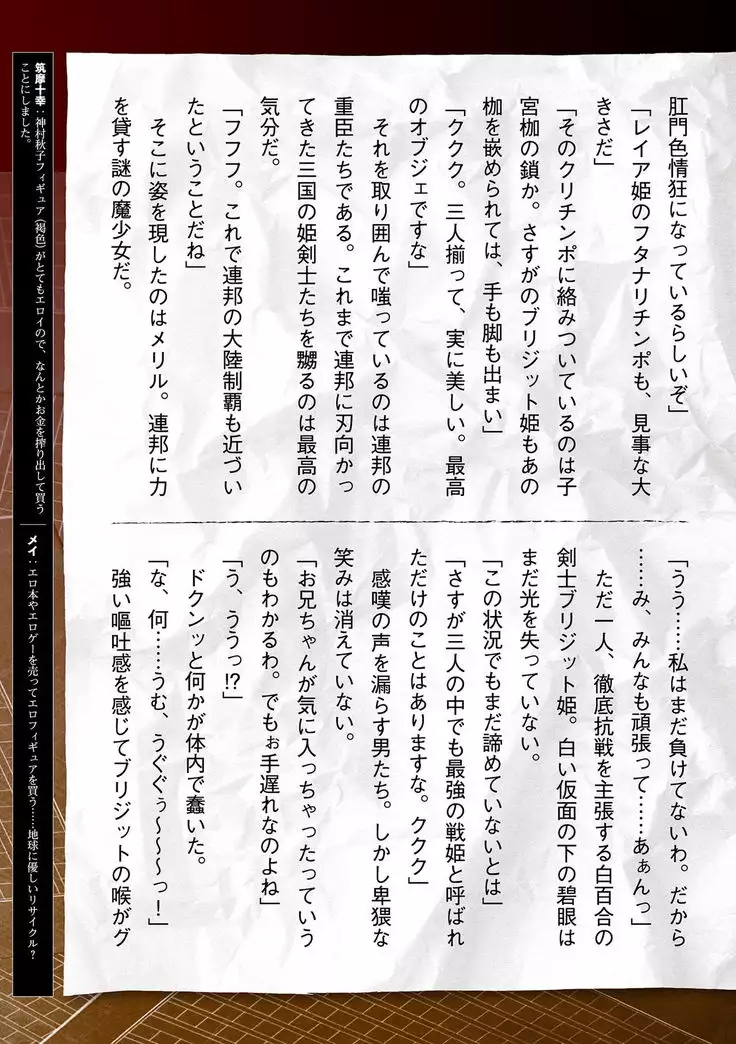 肛門色情狂になっているらしいぞ」
「レイア姫のフタナリチンポも、見事な大
きさだ」
「そのクリチンポに絡みついているのは子
宮枷の鎖か。さすがのブリジット姫もあの
枷を嵌められては、手も脚も出まい」
「ククク。三人揃って、実に美しい。最高
のオブジェですな」
それを取り囲んで嗤っているのは連邦の
重臣たちである。これまで連邦に刃向かっ
てきた三国の姫剣士たちを嬲るのは最高の
気分だ。
「フフフ。これで連邦の大陸制覇も近づい
たということだね」
そこに姿を現したのはメリル。連邦に力
を貸す謎の魔少女だ。
「うう……私はまだ負けてないわ。だから
……み、みんなも頑張って……あぁんっ」
ただ一人、徹底抗戦を主張する白百合の
剣士ブリジット姫。白い仮面の下の碧眼は
まだ光を失っていない。
「この状況でもまだ諦めていないとは」
「さすが三人の中でも最強の戦姫と呼ばれ
ただけのことはありますな。ククク」
感嘆の声を漏らす男たち。しかし卑猥な
笑みは消えていない。
「お兄ちゃんが気に入っちゃったっていう
のもわかるわ。でもぉ手遅れなのよね」
「う、ううっ!?」
ドクンッと何かが体内で蠢いた。
「な、何……うむ、うぐぐぅ〜〜〜っ！」
強い嘔吐感を感じてブリジットの喉がグ
筑摩十幸：神村秋子フィギュア（褐色）がとてもエロイので、なんとかお金を搾り出して買う
ことにしました。
メイ：エロ本やエロゲーを売ってエロフィギュアを買う……地球に優しいリサイクル？